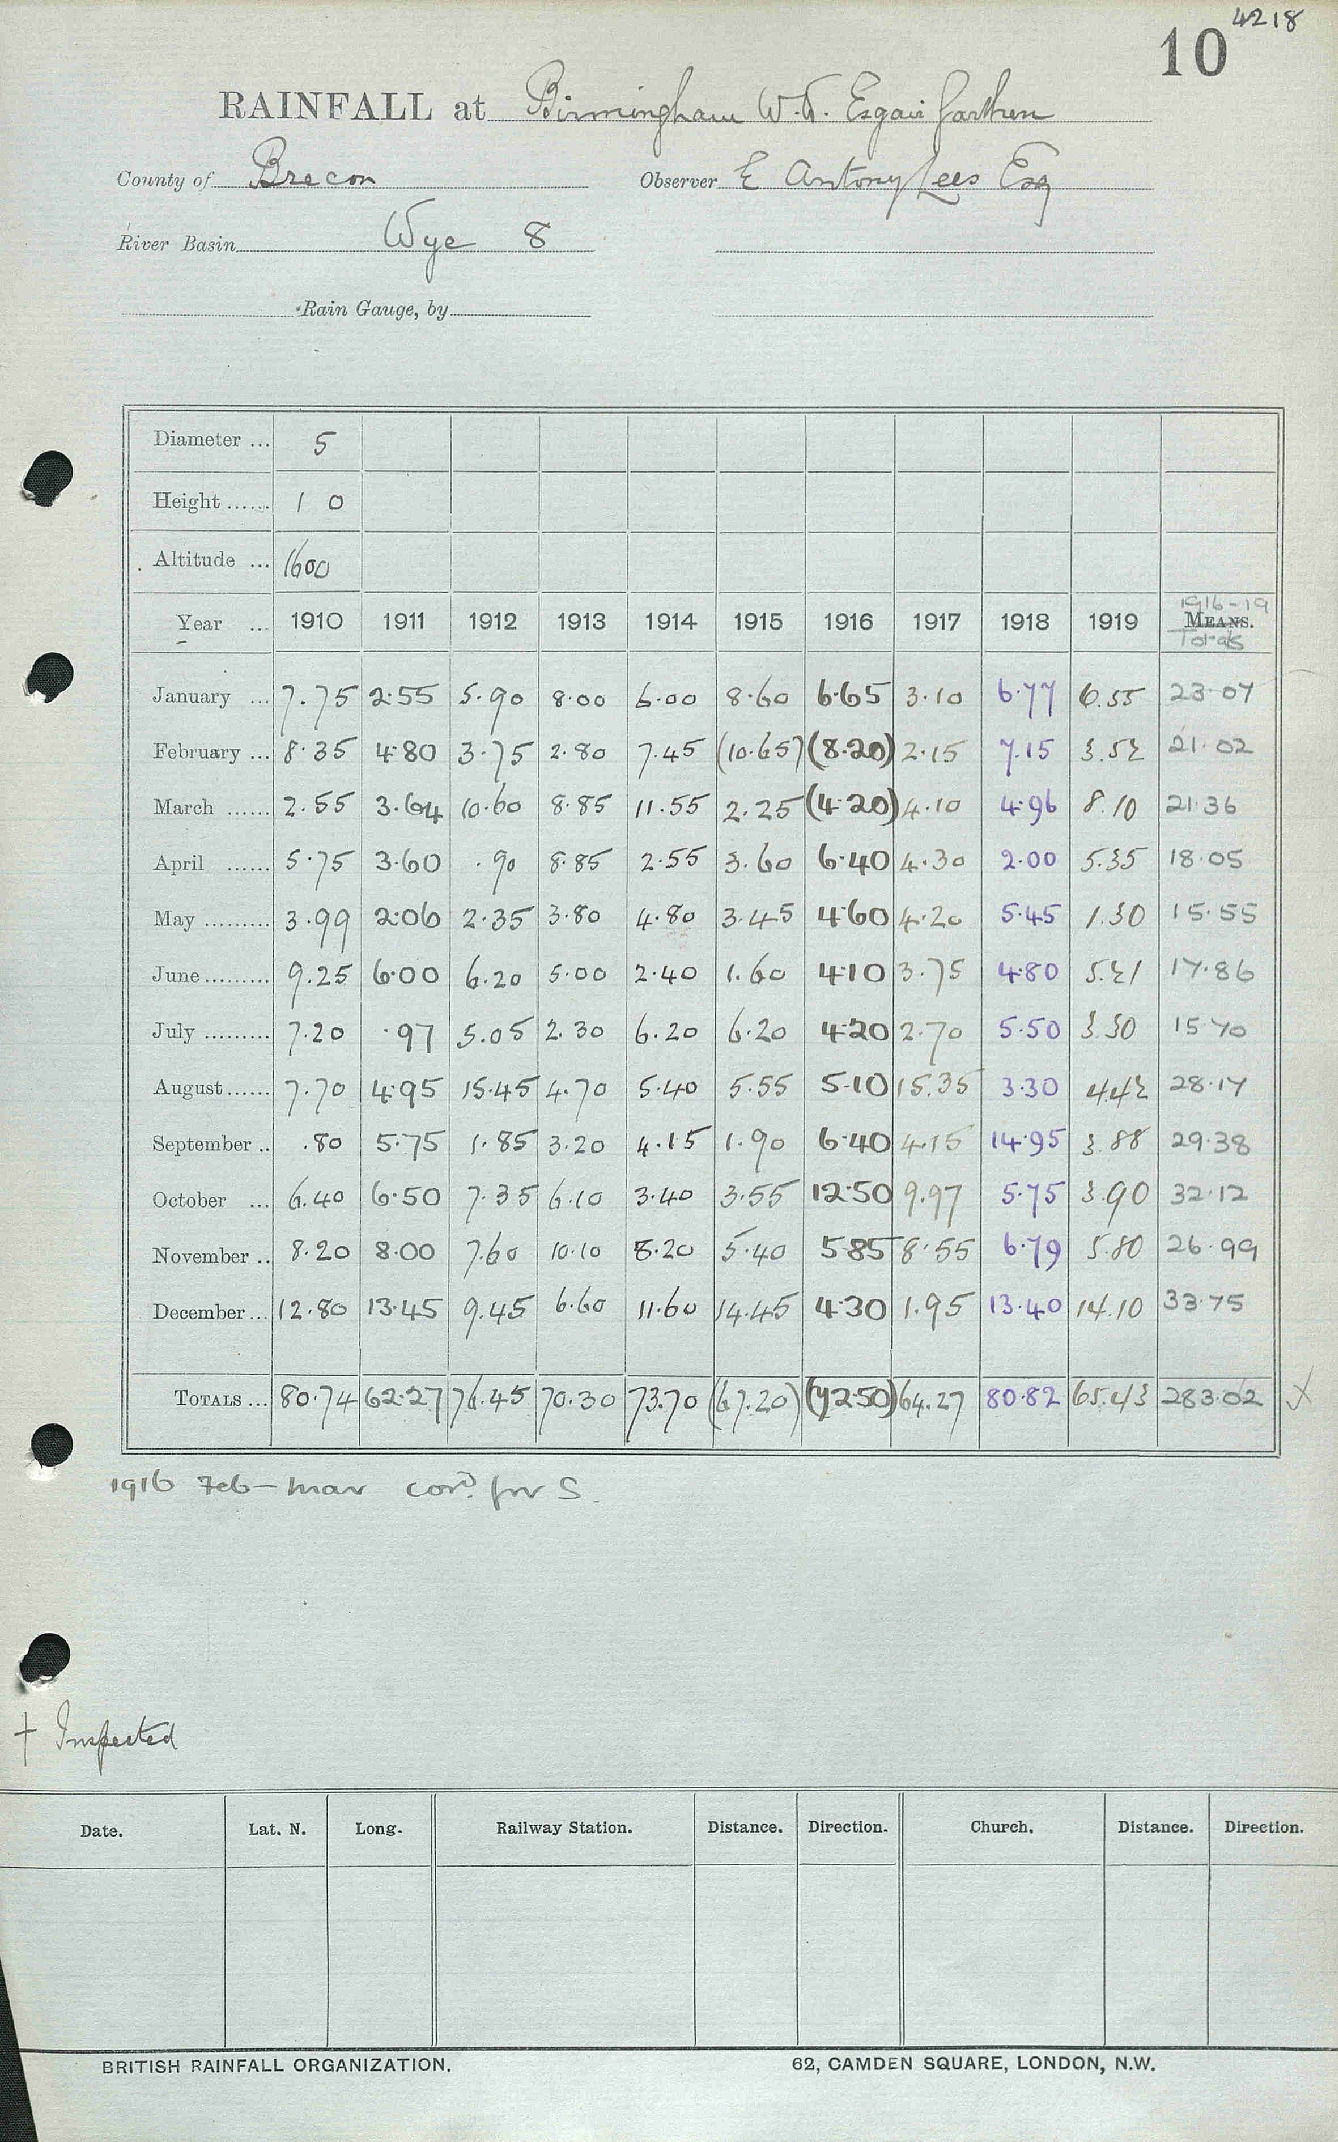 4218
10
RAINFALL at Birmingham W.W. Esgair Garthen
County of Brecon Observer E Antony Lees Esq
River Basin Wye 8
Rain Gauge, by
Diameter ... 5
Height ...... 10
Altitude ... 1600
1916-19
Year ... 1910 1911 1912 1913 1914 1915 1916 1917 1918 1919 MEANS.
Totals
January ... 7.75 2.55 5.90 8.00 6.00 8.60 6.65 3.10 6.77 6.55 23.07
February ... 8.35 4.80 3.75 2.80 7.45 (10.65) (8.20) 2.15 7.15 3.52 21.02
March ...... 2.55 3.64 10.60 8.85 11.55 2.25 (4.20) 4.10 4.96 8.10 21.36
April ...... 5.75 3.60 .90 8.85 2.55 3.60 6.40 4.30 2.00 5.35 18.05
May ......... 3.99 2.06 2.35 3.80 4.80 3.45 4.60 4.20 5.45 1.30 15.55
June ......... 9.25 6.00 6.20 5.00 2.40 1.60 4.10 3.75 4.80 5.21 17.86
July ......... 7.20 .97 5.05 2.30 6.20 6.20 4.20 2.70 5.50 3.30 15.70
August ...... 7.70 4.95 15.45 4.70 5.40 5.55 5.10 15.35 3.30 4.42 28.17
September .. .80 5.75 1.85 3.20 4.15 1.90 6.40 4.15 14.95 3.88 29.38
October ... 6.40 6.50 7.35 6.10 3.40 3.55 12.50 9.97 5.75 3.90 32.12
November .. 8.20 8.00 7.60 10.10 8.20 5.40 5.85 8.55 6.79 5.80 26.99
December ... 12.80 13.45 9.45 6.60 11.60 14.45 4.30 1.95 13.40 14.10 33.75
TOTALS ... 80.74 62.27 76.45 70.30 73.70 (67.20) (72.50) 64.27 80.82 65.43 283.02 X
1916 Feb-Mar corᵈ. for S.
† Inspected
Date. Lat. N. Long. Railway Station. Distance. Direction. Church. Distance. Direction.
BRITISH RAINFALL ORGANIZATION. 62, CAMDEN SQUARE, LONDON, N.W.